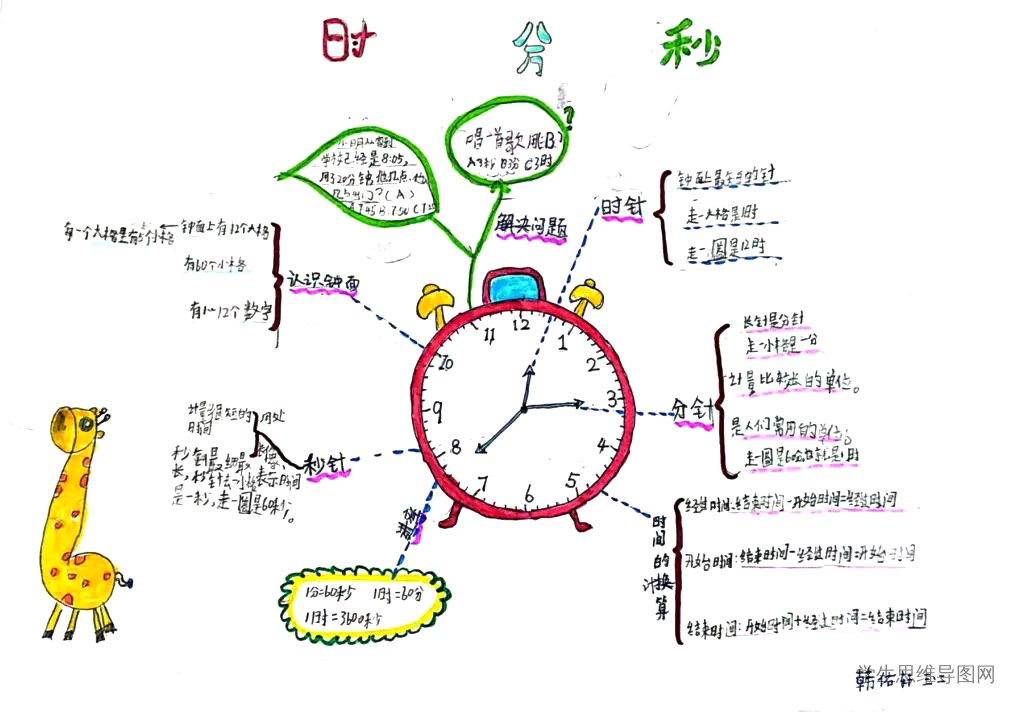 时 分 秒
小明人看到
学校已经是8:05,
用了20分钟他几点
出门?(A)
唱一首歌用B?
A 3秒 B 3分 C 3时
解决问题
时针
钟面上最短的针
走一大格是1时
走一圈是12时
认识钟面
每一个大格里有5个小格
钟面上有12个大格
有60个小格
有1~12个数字
12
1
2
3
4
5
6
7
8
9
10
11
分针
长针是分针
走一小格是一分
计量比较长的单位。
是人们常用的单位;
走一圈是60分也就是1时
秒针
计量很短的
时间
用处
秒针最细最
长,秒针走一小格表示时间
是一秒,走一圈是60秒。
1分=60秒 1时=60分
1时=3600秒
时间的计换算
经过时间:结束时间-开始时间=经过时间
开始时间:结束时间-经过时间=开始时间
结束时间:开始时间+经过时间=结束时间
学生思维导图网